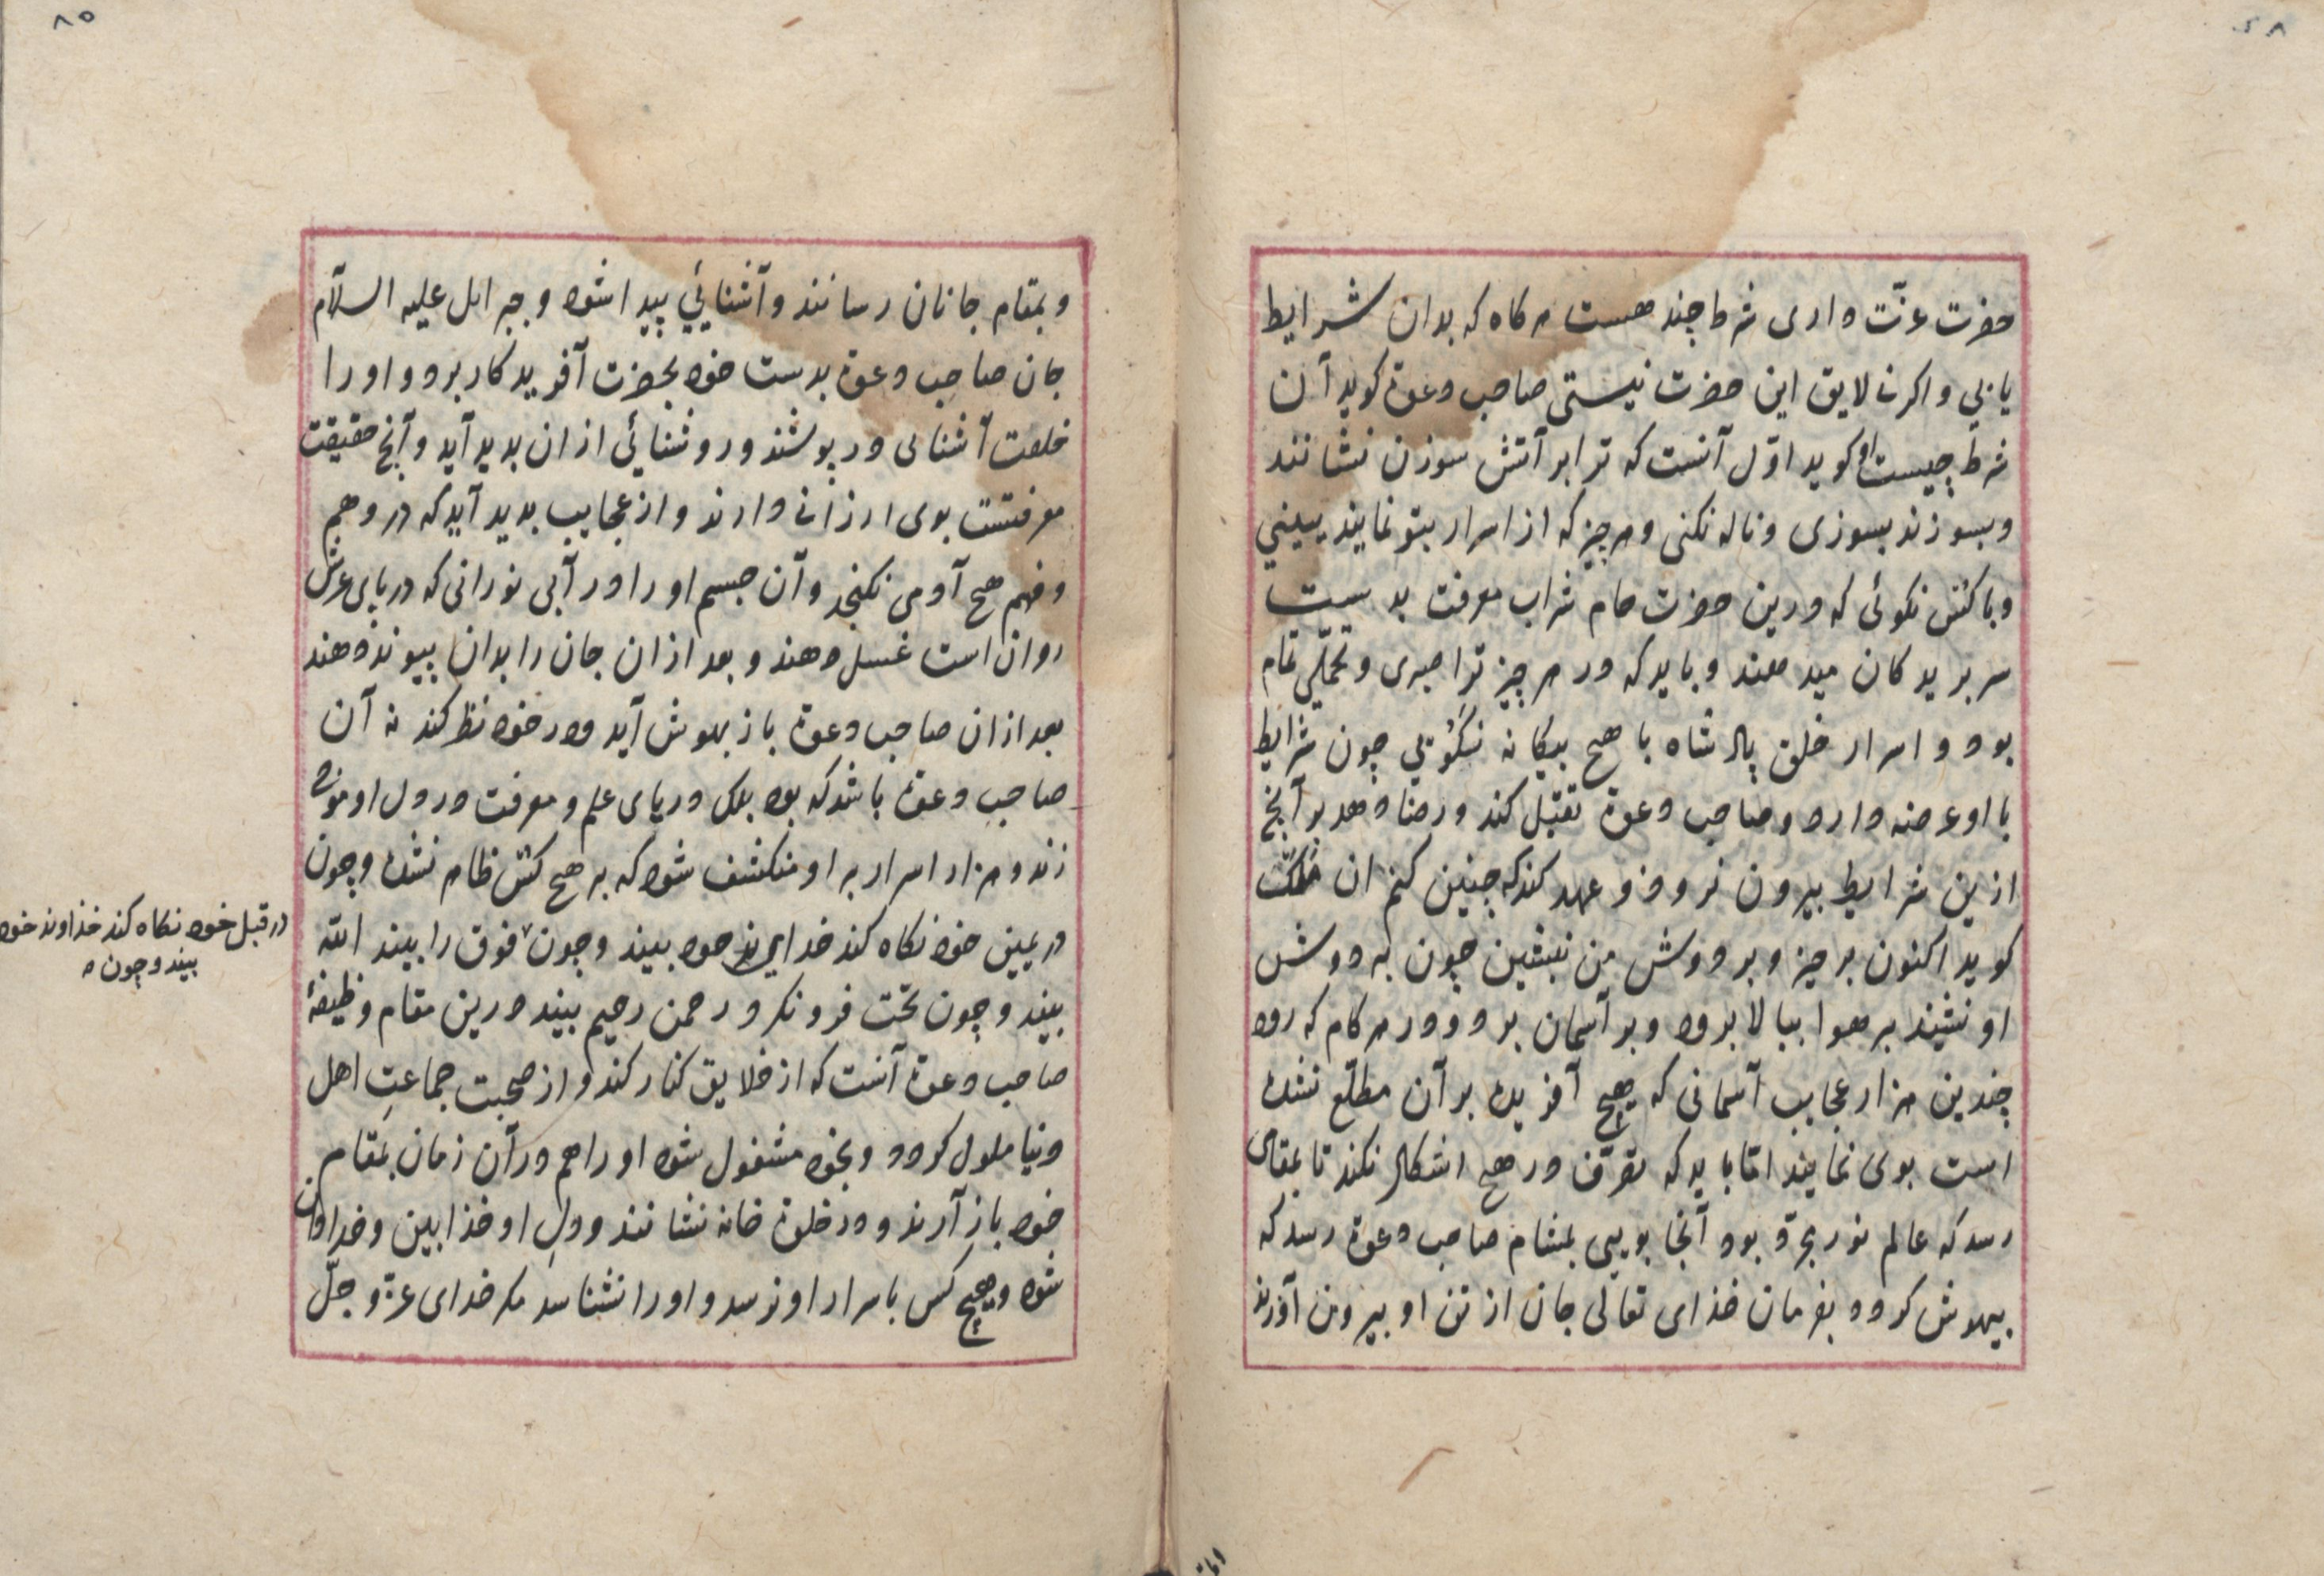 حضرت عزّت داری شرط چند هست هرکاه که بدان شرایط
یابی و اکر نه لایق این حضرت نیستی صاحب دعوة کوید آن
شرط چیست او کوید اوّل آنست که ترا بر آتش سوزن نشانند
و بسوزند بسوزی و ناله نکنی و هر چیز که از اسرار بتو نمایند ببینی
و با کس نکوئی که درین حضرت جام شراب معرفت بدست
سر بریدکان میدهند و باید که در هر چیز ترا صبری و تحمّلی تمام
بود و اسرار خلق پادشاه با هیچ بیکانه نکوئی چون شرایط
با او عرضه دارد و صاحب دعوة تقبّل کند و رضا دهد بر آنچ
ازین شرایط بیرون نروذ و عهد کند که چنین کنم ان ملک
کوید اکنون برخیز و بر دوش من بنشین چون به دوش
او نشیند بر هوا ببالا برود و بر آسمان برد و در هر کام که رود
چندین هزار عجایب آسمانی که هیچ آفریده بر آن مطلّع نشده
است بوی نمایند امّا باید که تصرّف در هیچ اشکال نکند تا بمقامی
رسد که عالم نور مجرّد بود آنجا بویی بمشام صاحب دعوة رسد که
بیهوش کردد بفرمان خذای تعالی جان از تن او بیرون آورند
۸۵
و بمقام جانان رسانند و آشنایی پیدا شود و جبرایل علیه السلآم
جان صاحب دعوة بدست خود بحضرت آفریدکار برد و او را
خلعت آشنایی در پوشند و روشنائی از ان بدید آید و آنچ حقیقت
معرفتست بوی ارزانی دارند و از عجایب بدید آید که در وهم
و فهم هیچ آدمی نکنجد و آن جسم او را در آبی نورانی که در پای عرش
روان است غسل دهند و بعد از ان جان را بدان پیوند دهند
بعد از ان صاحب دعوة باز بهوش آید و در خود نظر کند نه آن
صاحب دعوة باشد که بود بلک دریای علم و معرفت در دل او موج
زند و هزار اسرار بر او منکشف شود که بر هیچ کس ظاهر نشده و چون
در یمین خود نکاه کند خدای خود بیند و چون فوق را بیند الله
بیند و چون تحت فرو نکرد رحمن رحیم بیند درین مقام وظیفهٔ
صاحب دعوة آنست که از خلایق کنار کند و از صحبت جماعتِ اهل
دنیا ملول کردد و بخود مشغول شود او را هم در آن زمان بمقام
خود باز آرند و در خلوة خانه نشانند و دلِ او خذابین و خدادان
شود و هیچ کس باسرار او نرسد و او را نشناسد مکر خدای عزّ و جلّ
در قبل خود نکاه کند خذاوند خود
بیند و چون